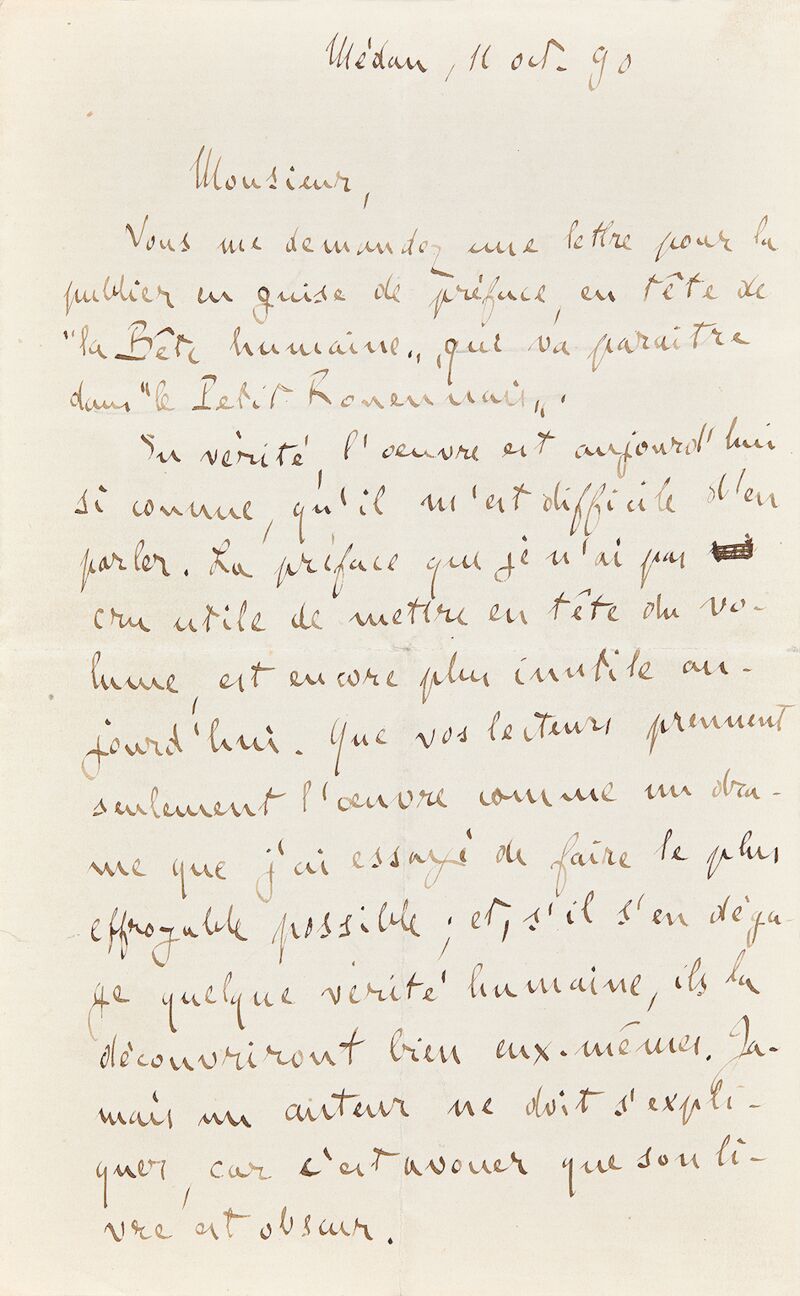 Médan, 11 oct. 90
Monsieur,
Vous me demandez une lettre pour la
publier en guise de préface, en tête de
"la Bête humaine", qui va paraître
dans "le Petit Rouennais".
En vérité, l'œuvre est aujourd'hui
si connue, qu'il m'est difficile d'en
parler. La préface que je n'ai pas
cru utile de mettre en tête du vo-
lume, est encore plus inutile au-
jourd'hui. Que vos lecteurs prennent
seulement l'œuvre comme un dra-
me que j'ai essayé de faire le plus
effroyable possible ; et, s'il s'en déga-
ge quelque vérité humaine, ils la
découvriront bien eux-mêmes. Ja-
mais un auteur ne doit s'expli-
quer, car c'est avouer que son li-
vre est obscur.